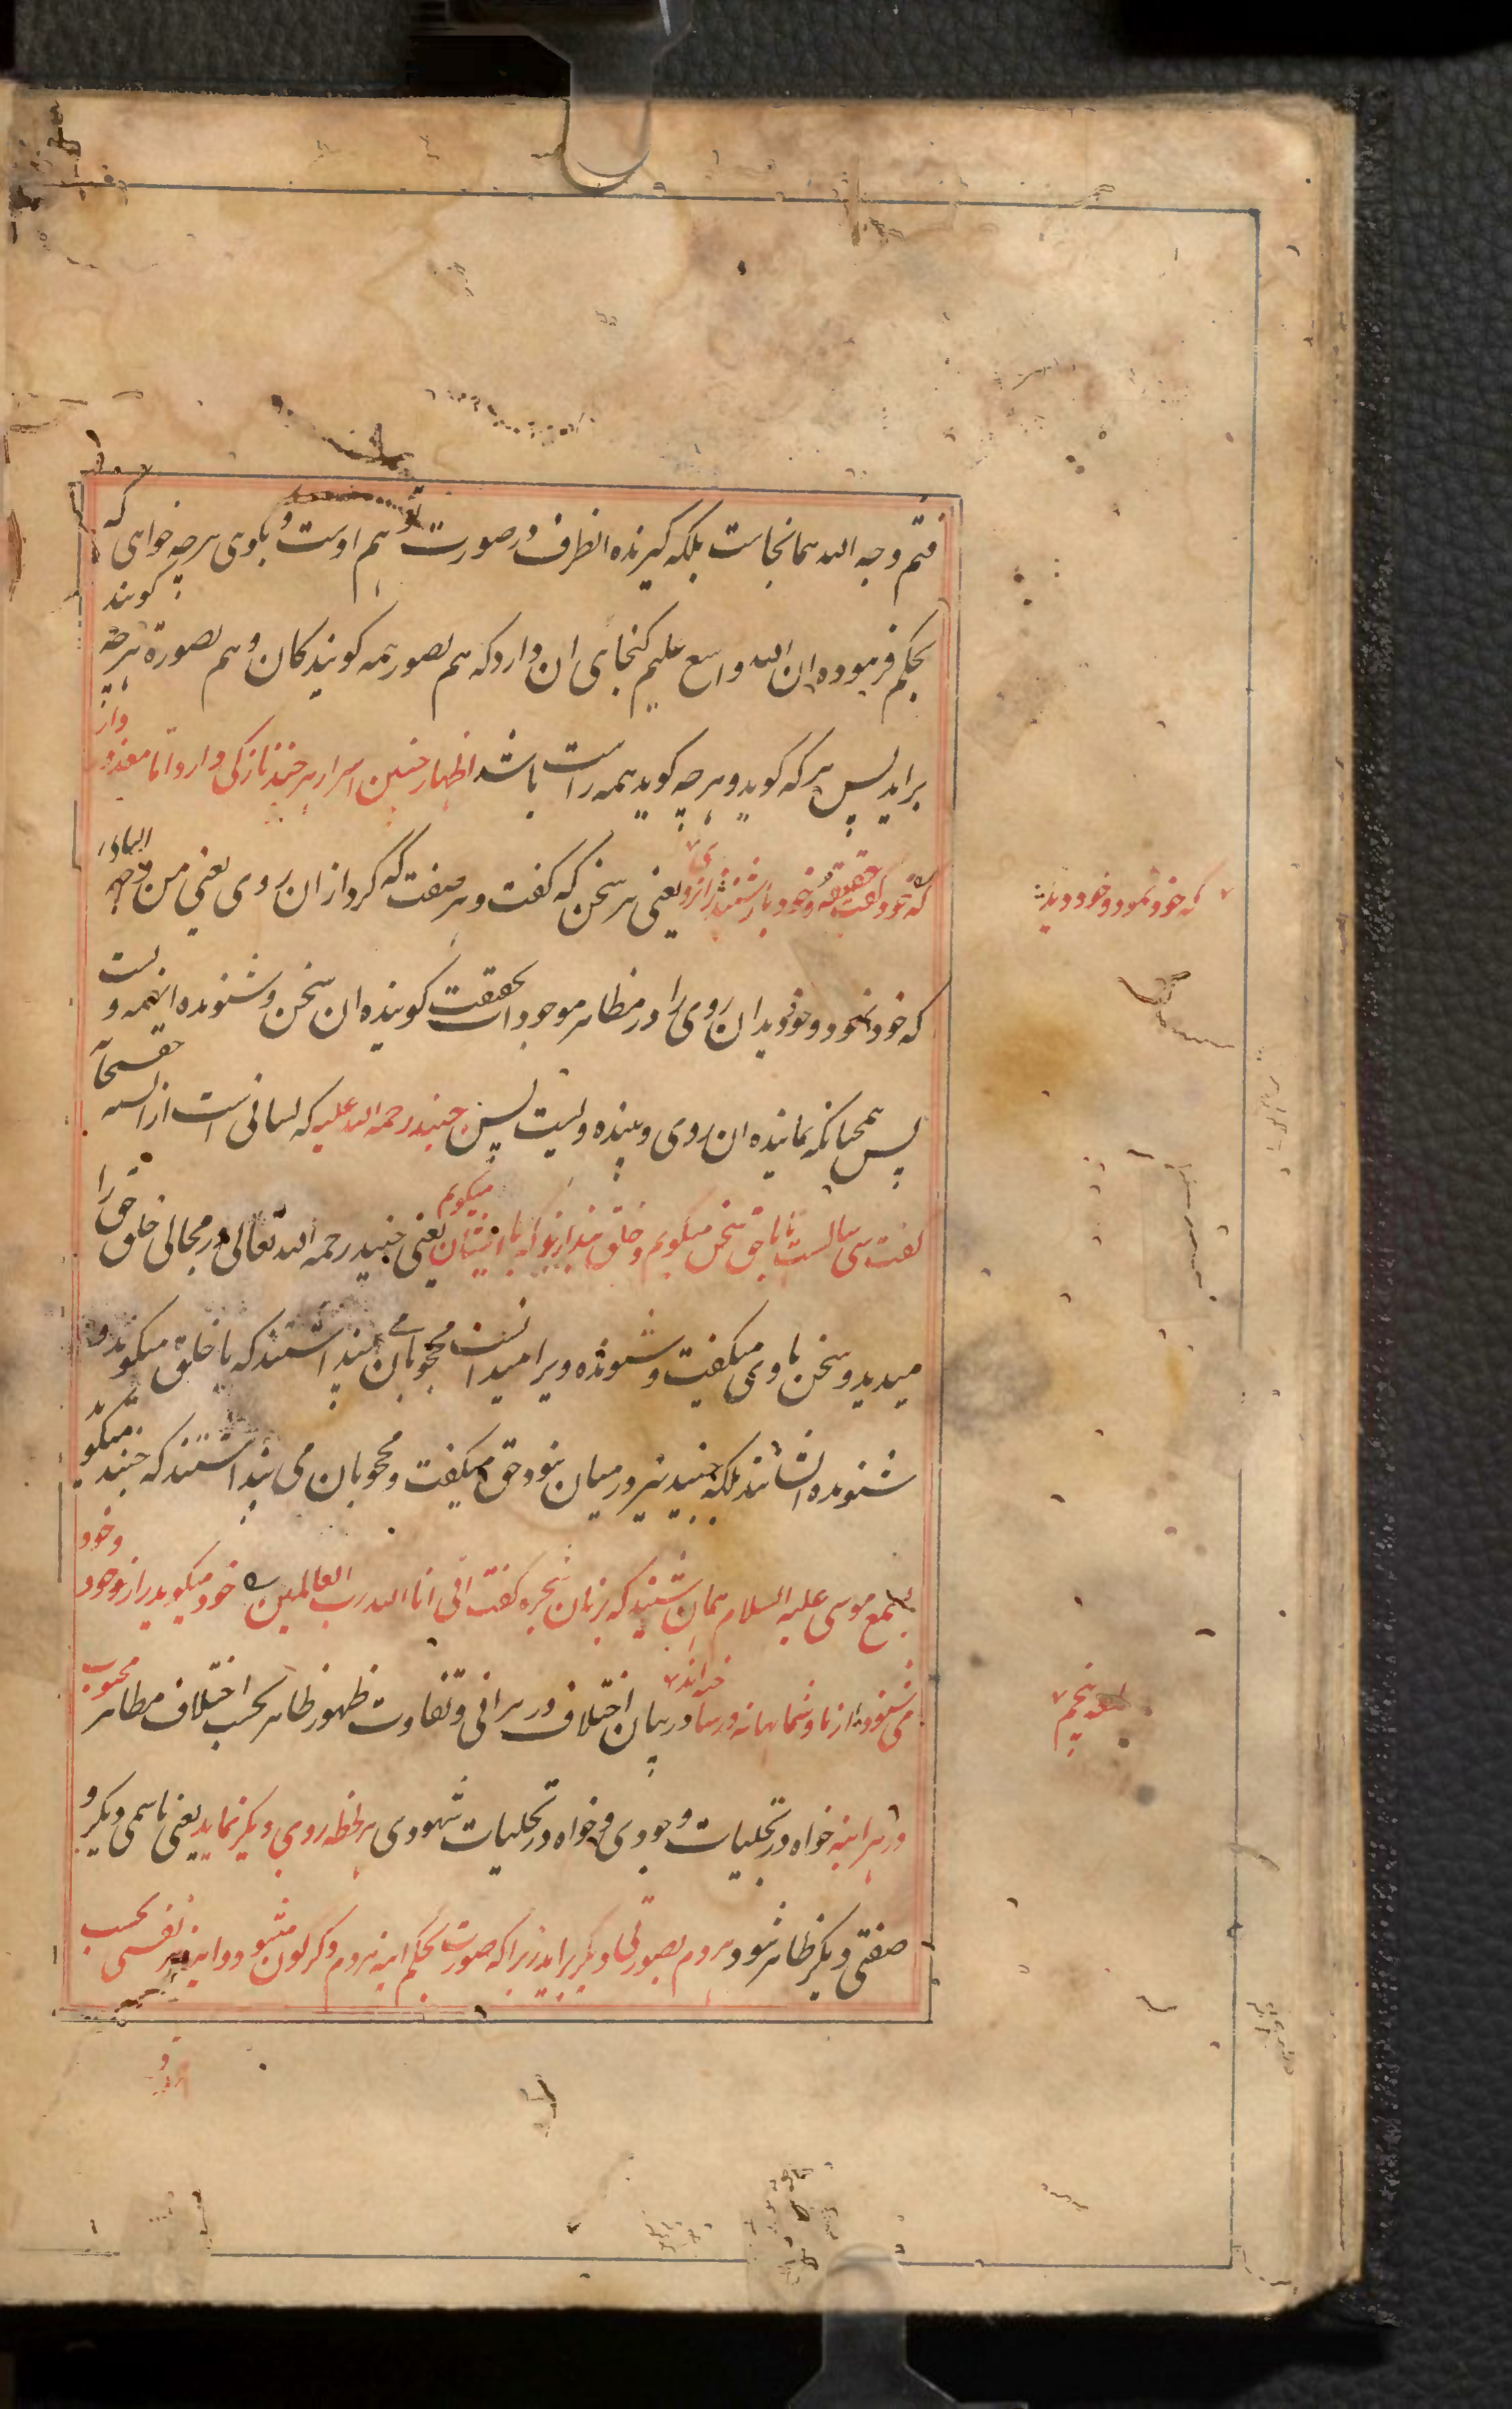 فثم وجه الله همانجاست بلکه کیرنده انطرف در صورت تو هم اوست و باوی هر چه خواهی که کویند
بحکم فرموده ان الله واسع علیم کنجای ان دارد که هم بصور همه کویندکان و هم بصورة هر چه
براید پس هر که کوید و هر چه کوید همه راست باشد اظهار چنین اسرار هر چند نازکی دارد اما معذور دار
که خود کفت حقیقة و خود باز شنید زان روی یعنی هر سخن که کفت و هر صفت که کرد از ان روی یعنی من وجه
که خود نمود و خود دید
که خود نمود و خود دید ان روی را در مظاهر موجودات بحقیقت کوینده ان سخن و شنونده انهمه وست
پس همچنانکه نماینده ان روی و بیننده ویست پس جنید رحمه الله علیه که لسانی است از السنه
کفت سی سالست تا با حق سخن میکویم و خلق پندارند که با ایشان میکویم یعنی جنید رحمه الله تعالی در مجالی خلق حق را
میدید و سخن با وی میکفت و شنونده ویرا میدانست محجوبان می پنداشتند که با خلق میکوید و
شنونده ایشانند بلکه جنید نیز در میان نبود حق میکفت و محجوبان می پنداشتند که جنید میکوید
بسمع موسی علیه السلام همان شنید که بزبان شجره کفت انی انا الله رب العالمین خود میکوید راز خود و خود
می شنود از ما و شما بهانه بر ساخته اند در بیان اختلاف در مرائی و تفاوت ظهور ظاهر بحسب اختلاف مظاهر محبوب
لمعه پنجم
در هر اینه خواه در تجلیات وجودی و خواه در تجلیات شهودی هر لحظه روی دیکر نماید یعنی باسمی دیکر و
صفتی دیکر ظاهر شود و هر دم بصورتی دیکر براید زیرا که صورت بحکم اینه هر دم دکرکون میشود و اینه هر نفسی بحسب